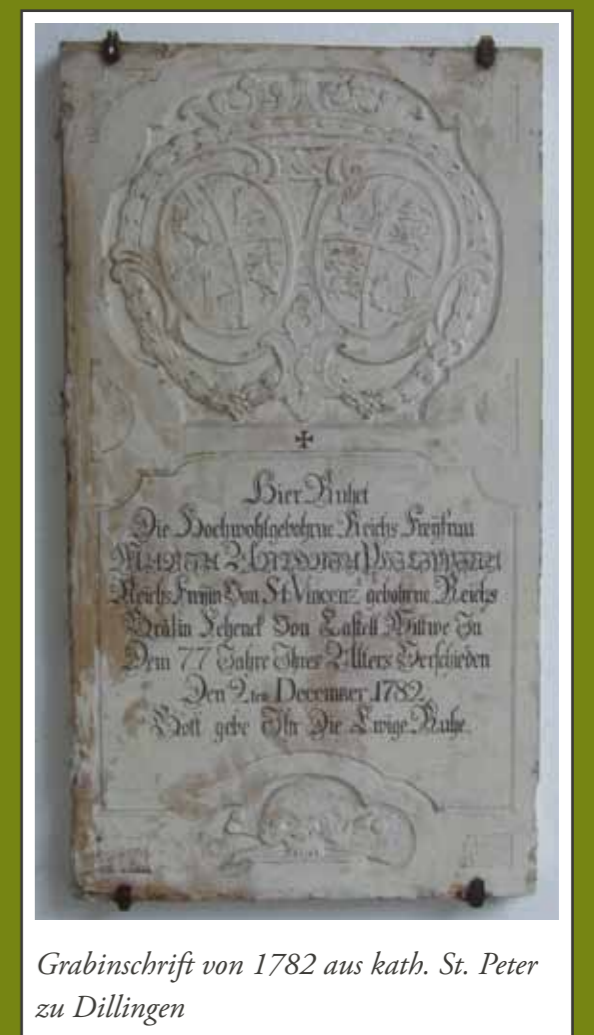 Hier Ruhet
Die Hochwohlgebohrne Reichs Freÿfrau
Reichs Freÿin Von St Vincenz gebohrne Reichs
Gräfin Schenck Von Castell Wittwe In
Dem 77 Jahre Ihres Alters Verschieden
Den 2ten December 1782
Gott gebe Ihr Die Ewige Ruhe.
Grabinschrift von 1782 aus kath. St. Peter
zu Dillingen